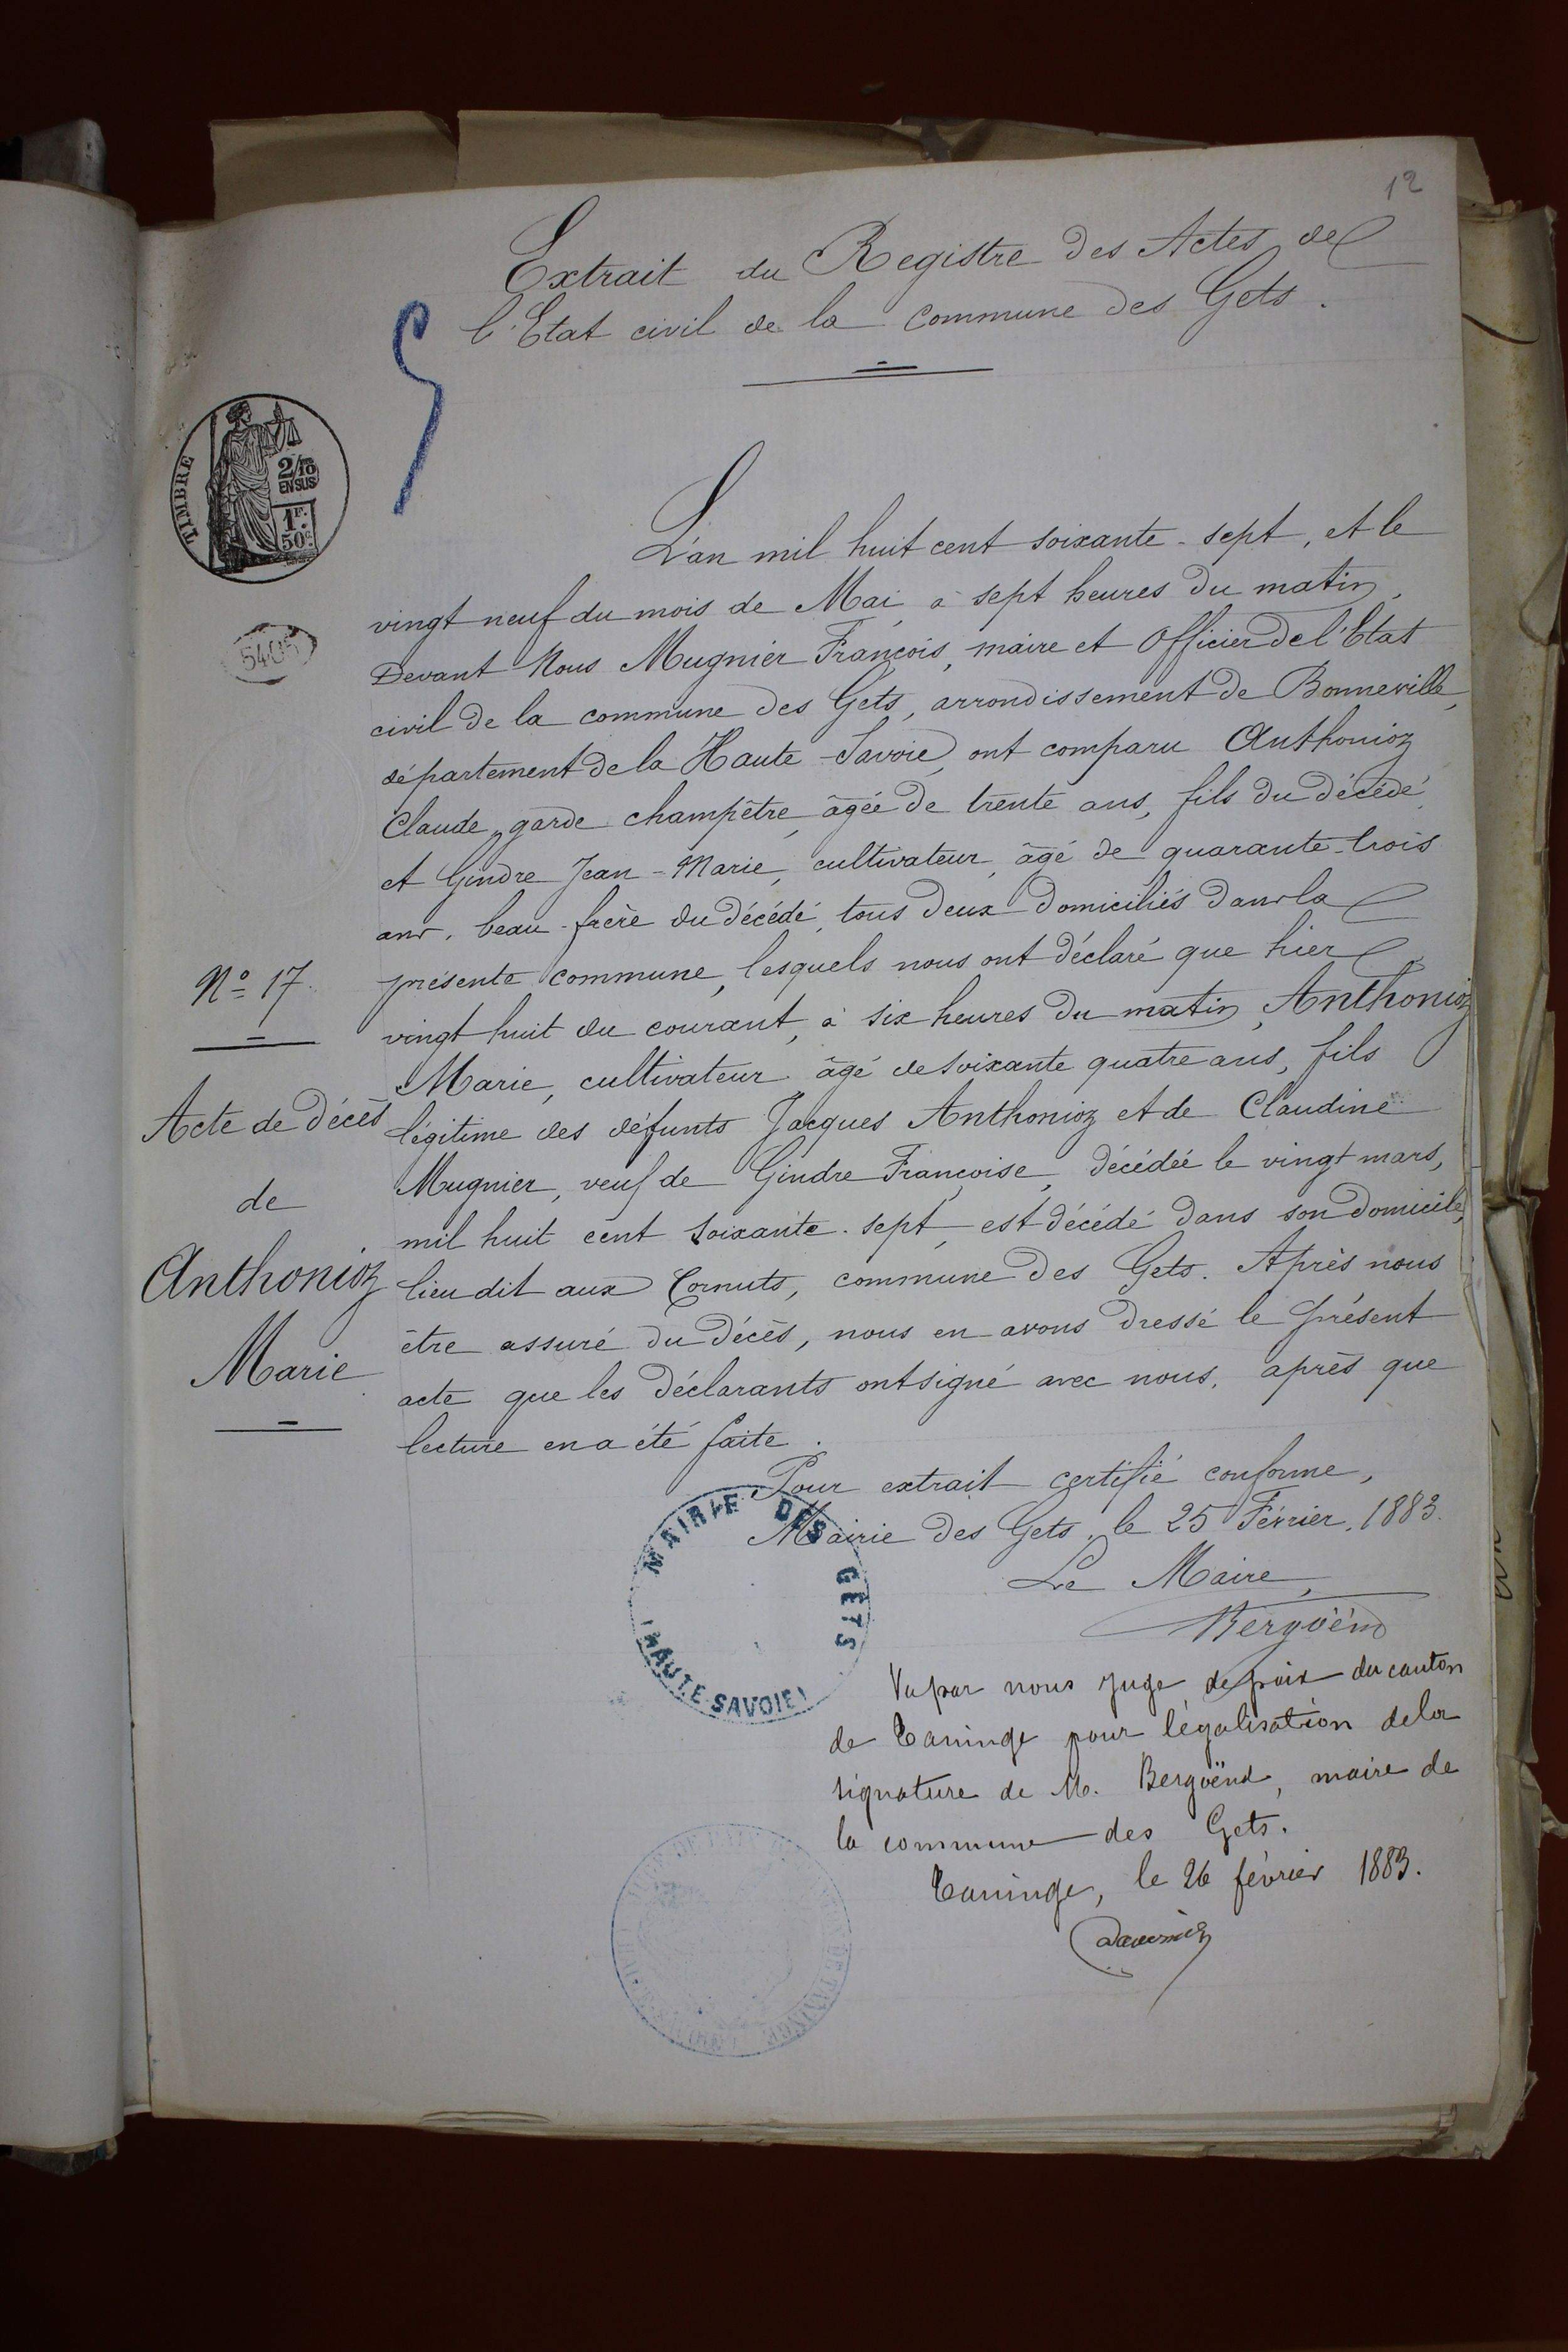 12
Extrait du Registre des Actes de
l'Etat civil de la Commune des Gets.
TIMBRE
2/10
EN SUS
1F.
50c.
5405
L'an mil huit cent soixante-sept, et le
vingt neuf du mois de Mai, à sept heures du matin,
Devant Nous Mugnier François, maire et Officier de l'Etat
civil de la commune des Gets, arrondissement de Bonneville,
département de la Haute-Savoie, ont comparu Anthonioz
Claude, garde champêtre, âgée de trente ans, fils du décédé,
et Gindre Jean-Marie, cultivateur, âgé de quarante-trois
ans, beau-frère du décédé, tous deux domiciliés dans la
présente commune, lesquels nous ont déclaré que hier
vingt huit du courant, à six heures du matin, Anthonioz
Marie, cultivateur âgé de soixante quatre ans, fils
légitime des défunts Jacques Anthonioz et de Claudine
Mugnier, veuf de Gindre Françoise, décédée le vingt mars,
mil huit cent soixante-sept, est décédé dans son domicile,
lieu dit aux Cornuts, commune des Gets. Après nous
être assuré du décès, nous en avons dressé le présent
acte que les déclarants ont signé avec nous, après que
lecture en a été faite.
N° 17.
Acte de décès
de
Anthonioz
Marie
Pour extrait certifié conforme,
Mairie des Gets, le 25 Février, 1883.
Le Maire,
Bergoënd
MAIRIE DES GETS
(HAUTE-SAVOIE)
Vu par nous juge de paix du canton
de Taninge pour légalisation de la
signature de M. Bergoënd, maire de
la commune des Gets.
Taninge, le 26 février 1883.